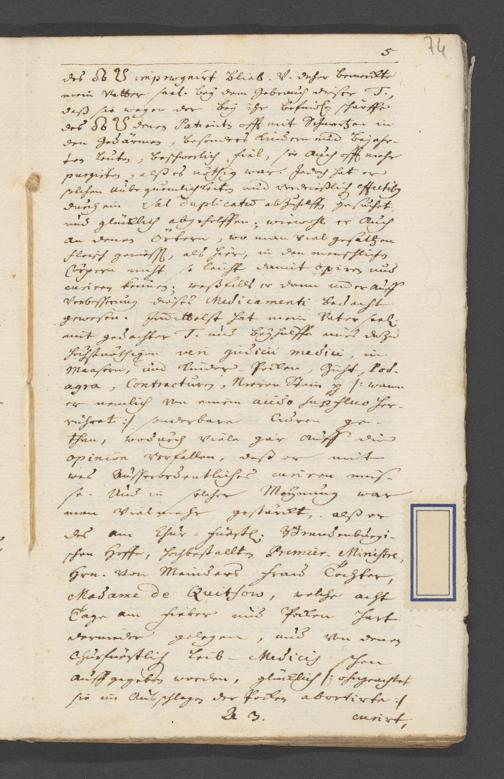 5
74
des impregnirt blieb. V. daher bemerckte
mein Vatter seel. bey dem Gebrauch dieser T.,
daß sie wegen der bey ihr befindl. schärffe
des denen Patienten offt mit Schmertzen in
den Gedärmen, besonders Kindern und bejahr-
ten Leuten, beschwerlich fiel, sie auch offt mehr
purgirte, alß es nöthig war. Jedoch hat er
solchen
durch ein Sal duplicatum gesucht
und glücklich abgeholffen; wiewohl er auch
an denen Örtern, wo man viel gesaltzen
fleisch genießt, als hier, in den menschlichen
Cörpern nicht so leicht damit opiren und
curiren können; weßfalls er dann auff
Verbesserung dieses Medicamenti bedacht
gewesen. hat mein Vater seel.
mit gedachter T. und beyhülffe eines dazu
höchstnöthigen veri judicii medici, in
Masern, und Kinder Pocken, Gicht, Pod-
agra, Contracturen, Nieren Stein p /: wann
er nemlich von einem acido superfluo her-
rühret :/ sonderbare Curen ge-
than, wodurch viele gar auff die
opinion verfallen, daß er mit
was Ausserordentliches curiren müs-
se. Und in solcher Meynung war
man vielmehr gestärckt, alß er
des am Chur-Fürstl. Brandenburgi-
schen Hoff, hochbestallten Premier-Ministre,
Hrn. von Meinders Frau Tochter,
Madame de Quitsow, welche acht
Tage am fieber und Pocken hart
darnieder gelegen, und von denen
Churfürstlich Leib-Medicis schon
auffgegeben worden, glücklich /: ohngeachtet
sie im Ausschlagen der Pocken abortirte :/
A 3. curirt,